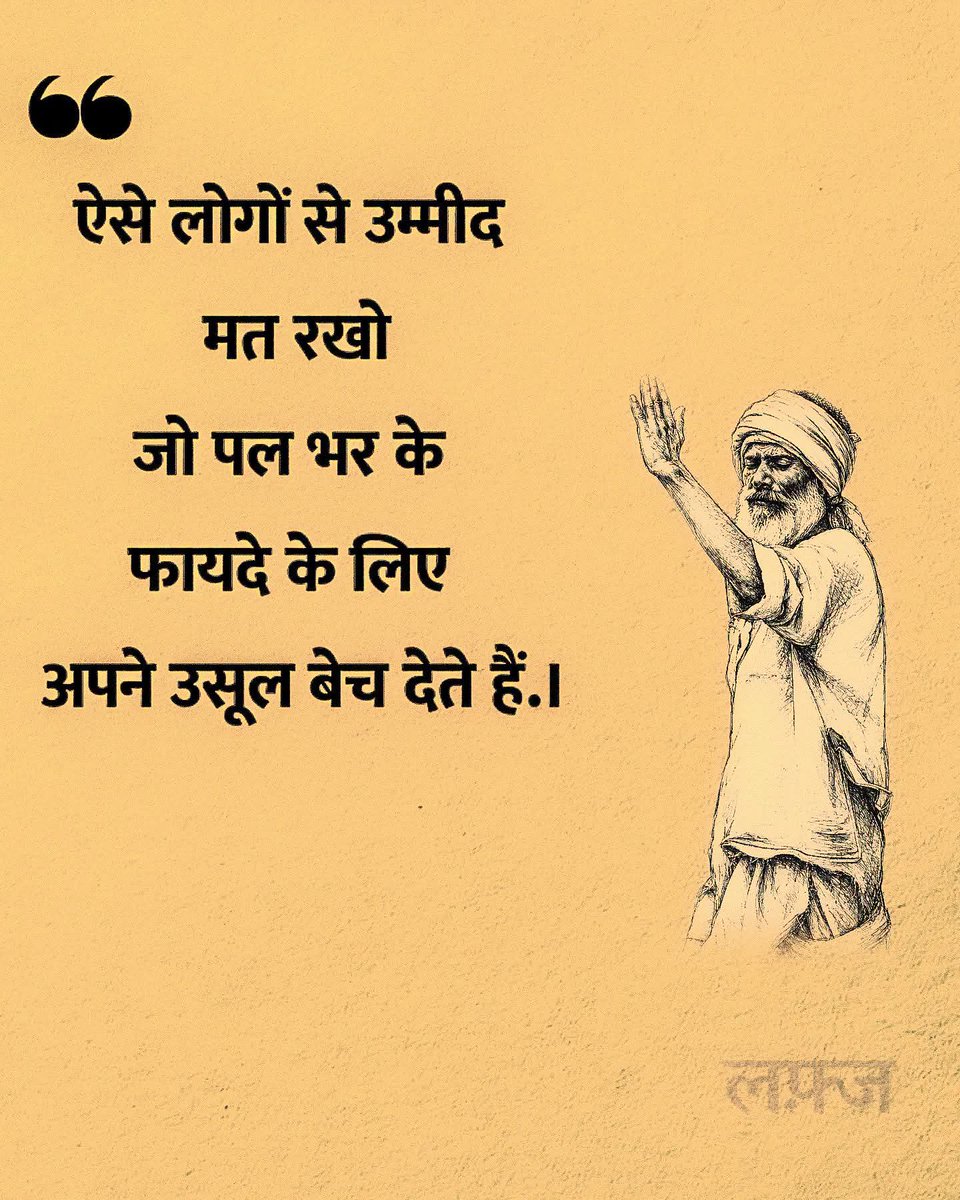 ❝
ऐसे लोगों से उम्मीद
मत रखो
जो पल भर के
फायदे के लिए
अपने उसूल बेच देते हैं.।
लफ़्ज़